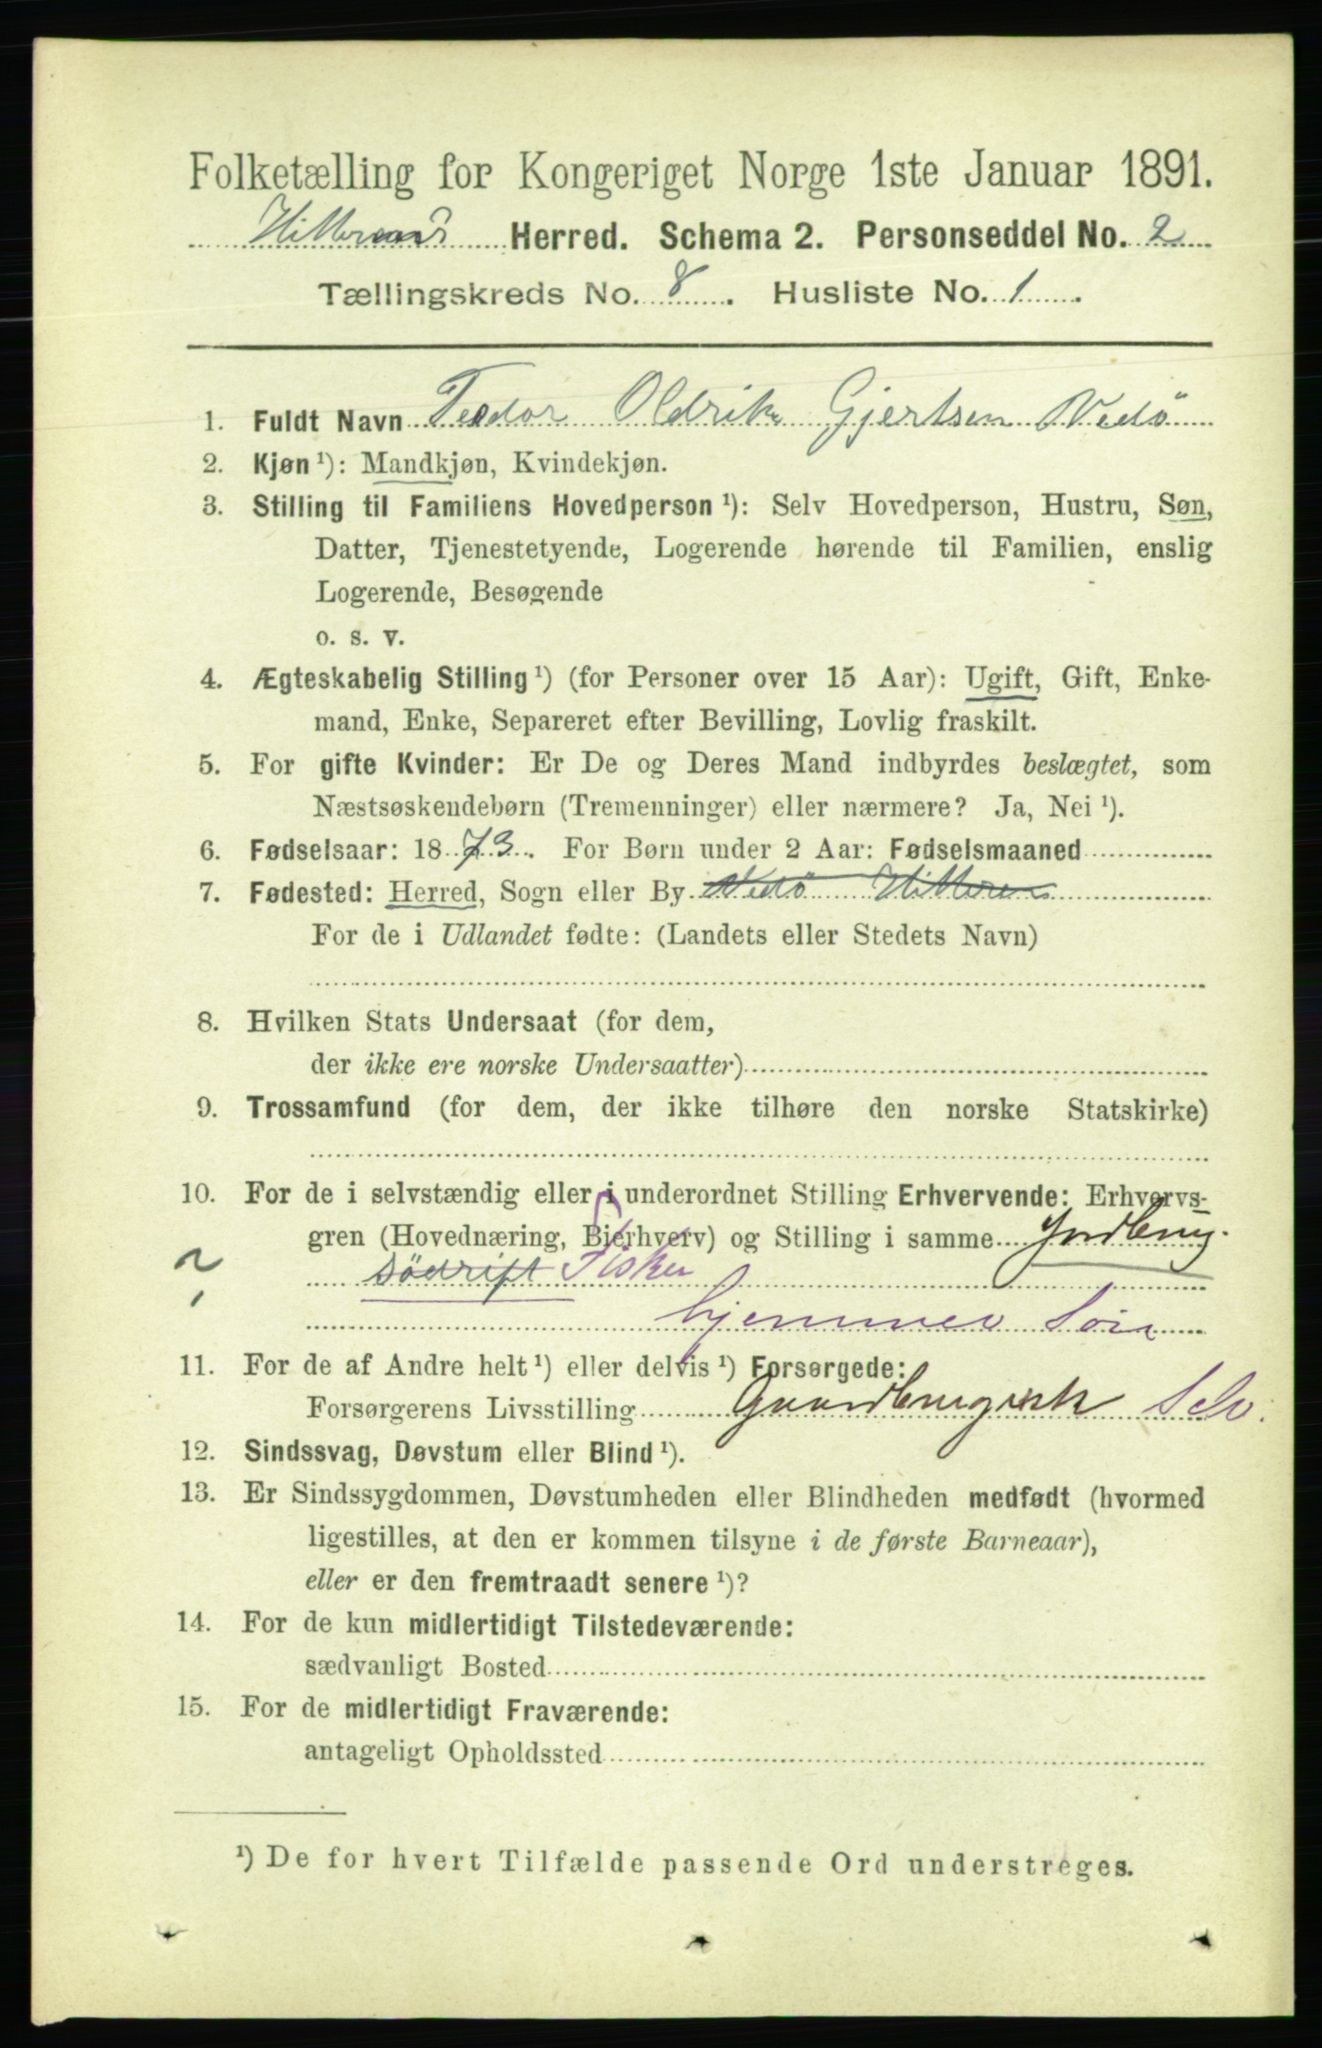 Folketælling for Kongeriget Norge 1ste Januar 1891.
Hitterens Herred. Schema 2. Personseddel No. 2
Tællingskreds No. 8. Husliste No. 1.
1. Fuldt Navn Teodor Oldrik Gjertsen Vedö
2. Kjøn ¹): Mandkjøn, Kvindekjøn.
3. Stilling til Familiens Hovedperson ¹): Selv Hovedperson, Hustru, Søn,
Datter, Tjenestetyende, Logerende hørende til Familien, enslig
Logerende, Besøgende
o. s. v.
4. Ægteskabelig Stilling ¹) (for Personer over 15 Aar): Ugift, Gift, Enke-
mand, Enke, Separeret efter Bevilling, Lovlig fraskilt.
5. For gifte Kvinder: Er De og Deres Mand indbyrdes beslægtet, som
Næstsøskendebørn (Tremenninger) eller nærmere? Ja, Nei ¹).
6. Fødselsaar: 1873. For Børn under 2 Aar: Fødselsmaaned
7. Fødested: Herred, Sogn eller By Vedö Hitteren
For de i Udlandet fødte: (Landets eller Stedets Navn)
8. Hvilken Stats Undersaat (for dem,
der ikke ere norske Undersaatter)
9. Trossamfund (for dem, der ikke tilhøre den norske Statskirke)
10. For de i selvstændig eller i underordnet Stilling Erhvervende: Erhvervs-
gren (Hovednæring, Bierhverv) og Stilling i samme Jordbrug.
södrift Fisker
hjemmev Sön
11. For de af Andre helt ¹) eller delvis ¹) Forsørgede:
Forsørgerens Livsstilling Gaardbrugersk Selv.
12. Sindssvag, Døvstum eller Blind ¹).
13. Er Sindssygdommen, Døvstumheden eller Blindheden medfødt (hvormed
ligestilles, at den er kommen tilsyne i de første Barneaar),
eller er den fremtraadt senere ¹)?
14. For de kun midlertidigt Tilstedeværende:
sædvanligt Bosted
15. For de midlertidigt Fraværende:
antageligt Opholdssted
¹) De for hvert Tilfælde passende Ord understreges.